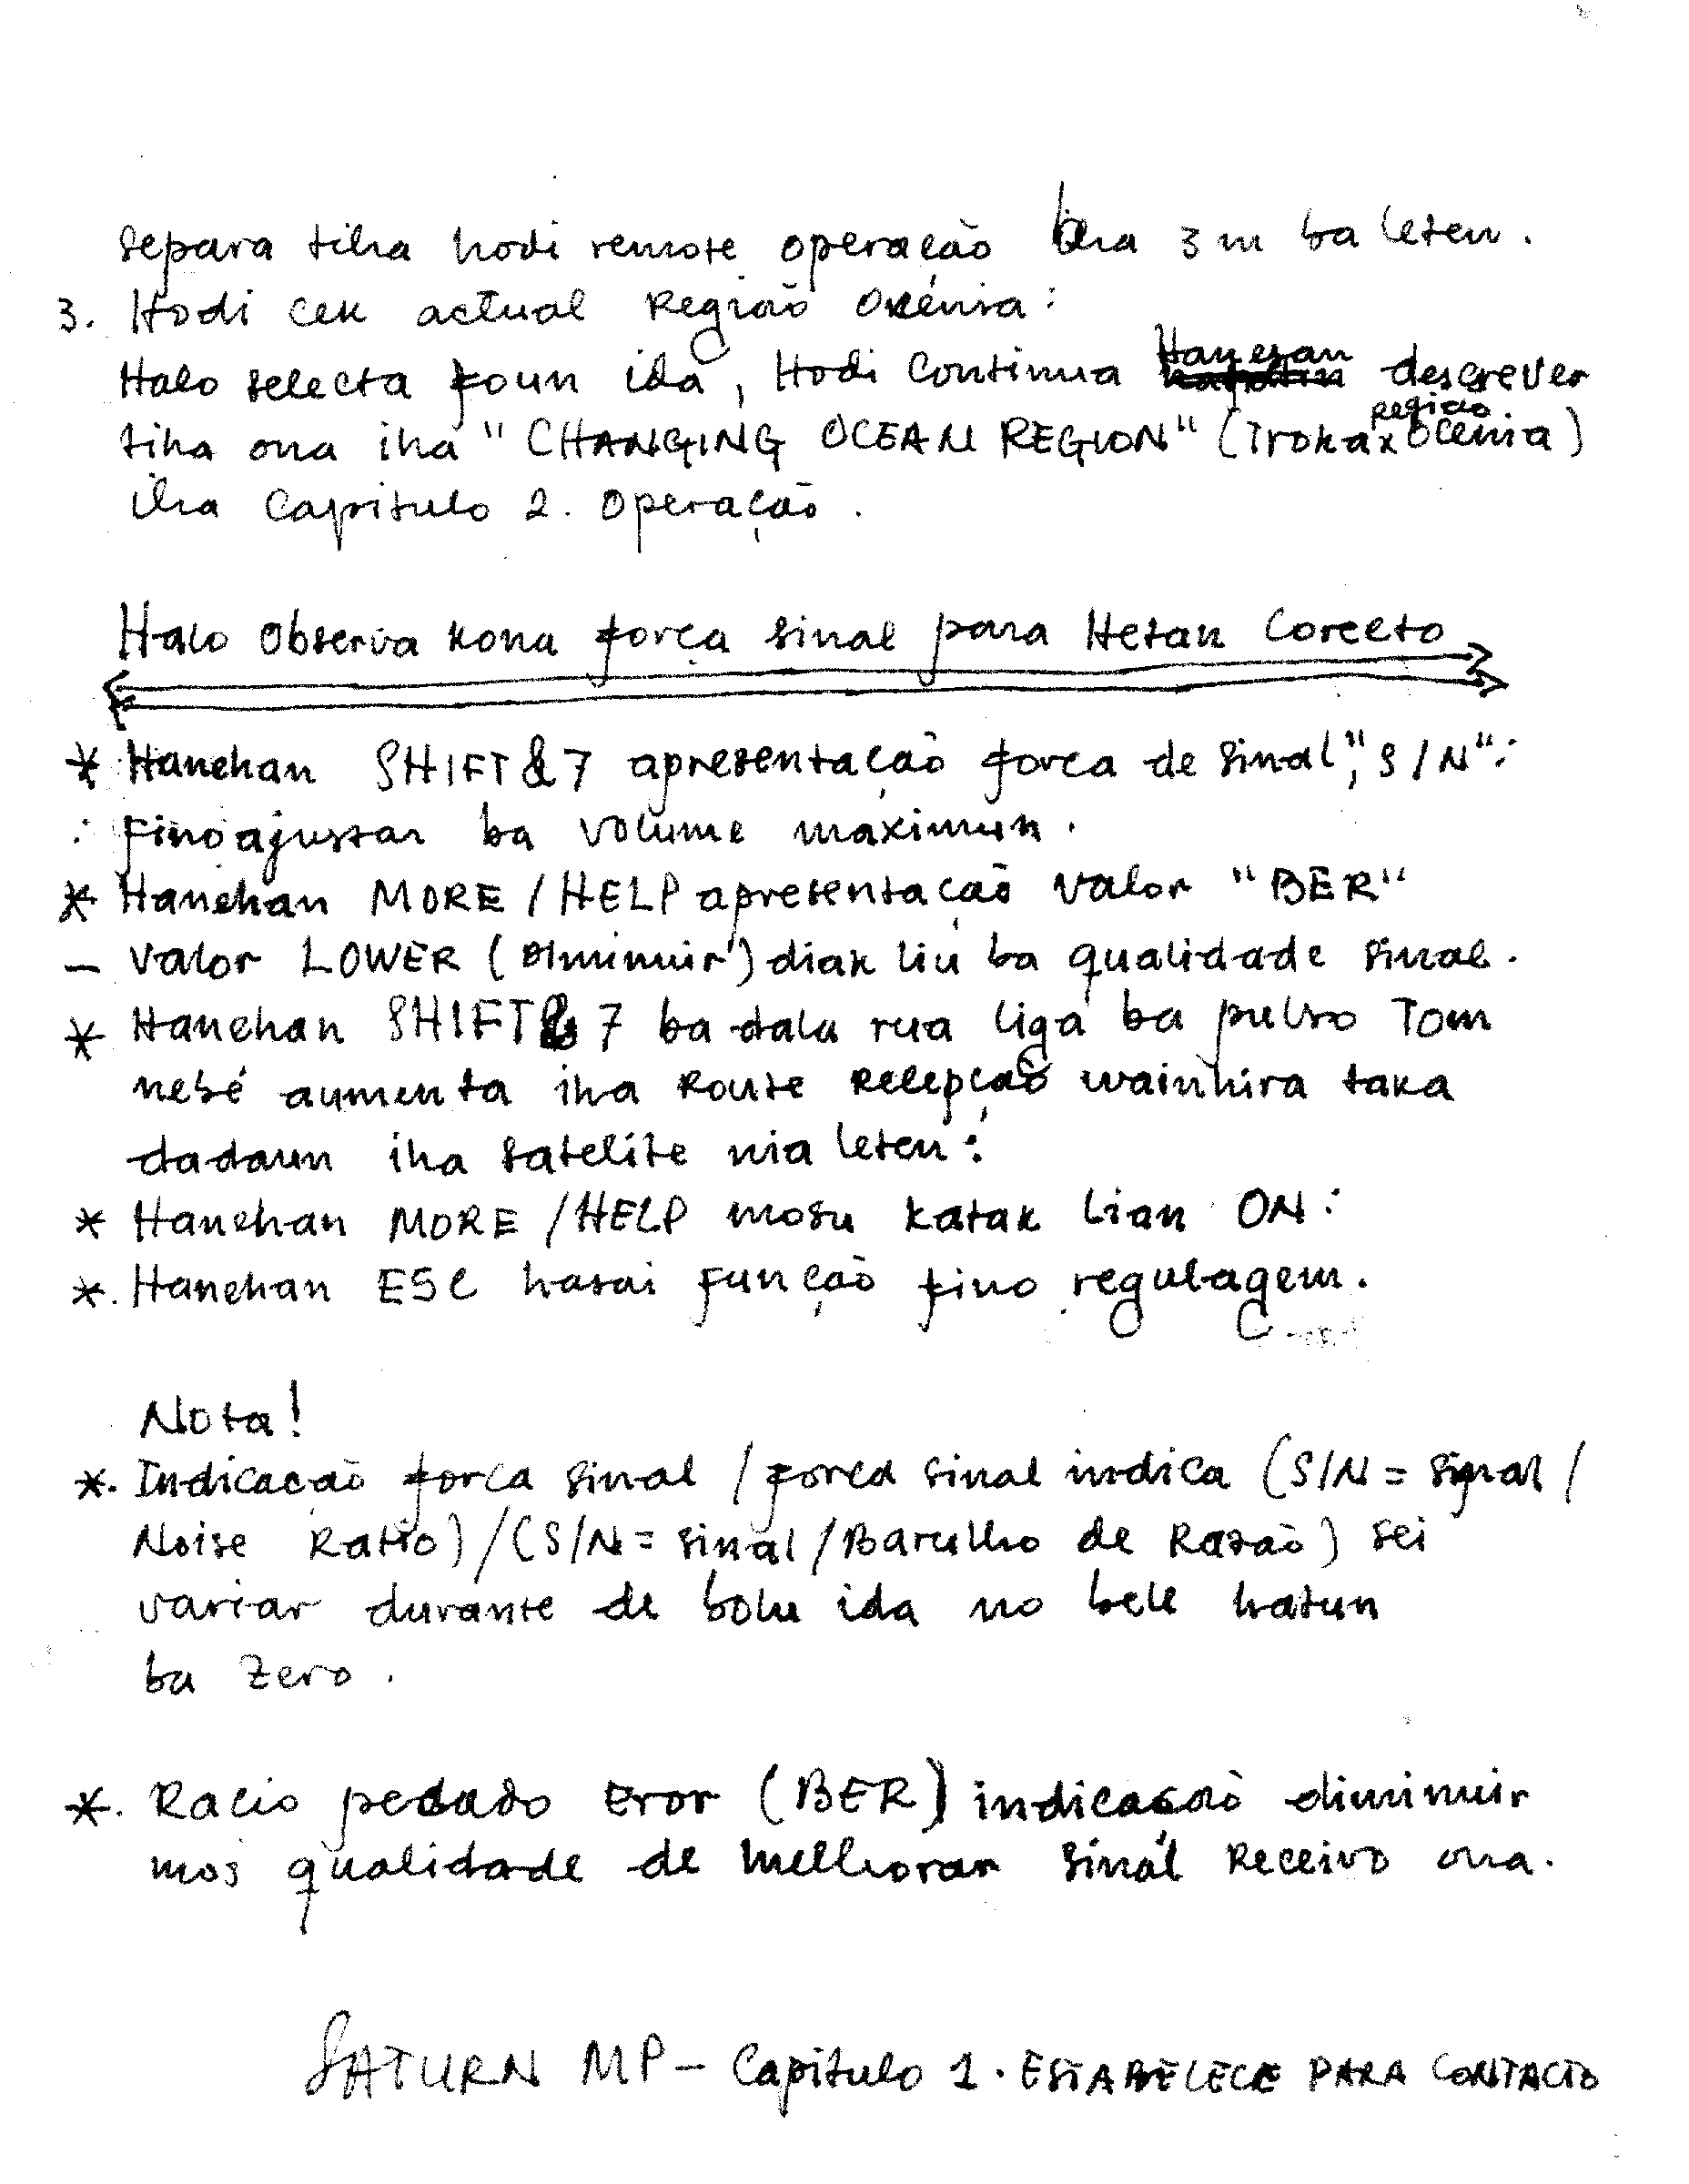 separa tiha hodi remote operação iha 3 m ba leten.
3. Hodi cek actual Região Ocênia:
Halo selecta foun ida, Hodi Continua Hanesan descrever
tiha ona iha "CHANGING OCEAN REGION" (Troka região Ocenia)
iha Capitulo 2. Operação.
Halo Observa kona força sinal para Hetan Correto
* Hanehan SHIFT & 7 apresentação força de sinal, "S/N":
: Fino ajustar ba volume maximun.
* Hanehan MORE / HELP apresentação valor "BER"
- Valor LOWER (Diminuir) diak liu ba qualidade sinal.
* Hanehan SHIFT & 7 ba dala rua liga ba pulso Tom
nebé aumenta iha Route Recepção wainhira taka
dadaun iha satelite nia leten:
* Hanehan MORE / HELP mosu katak Lian ON:
*. Hanehan ESC hasai função fino regulagem.
Nota!
*. Indicacaõ forca sinal / forca sinal indica (S/N = Signal /
Noise Ratio) / (S/N = Sinal / Barulho de Razaõ) sei
variar durante de bolu ida no bele hatun
ba Zero.
*. Racio pecado Eror (BER) indicacaõ diminuir
mos qualidade de melhorar sinal Receivo ona.
SATURN MP - Capitulo 1. ESTABELECE PARA CONTACTO